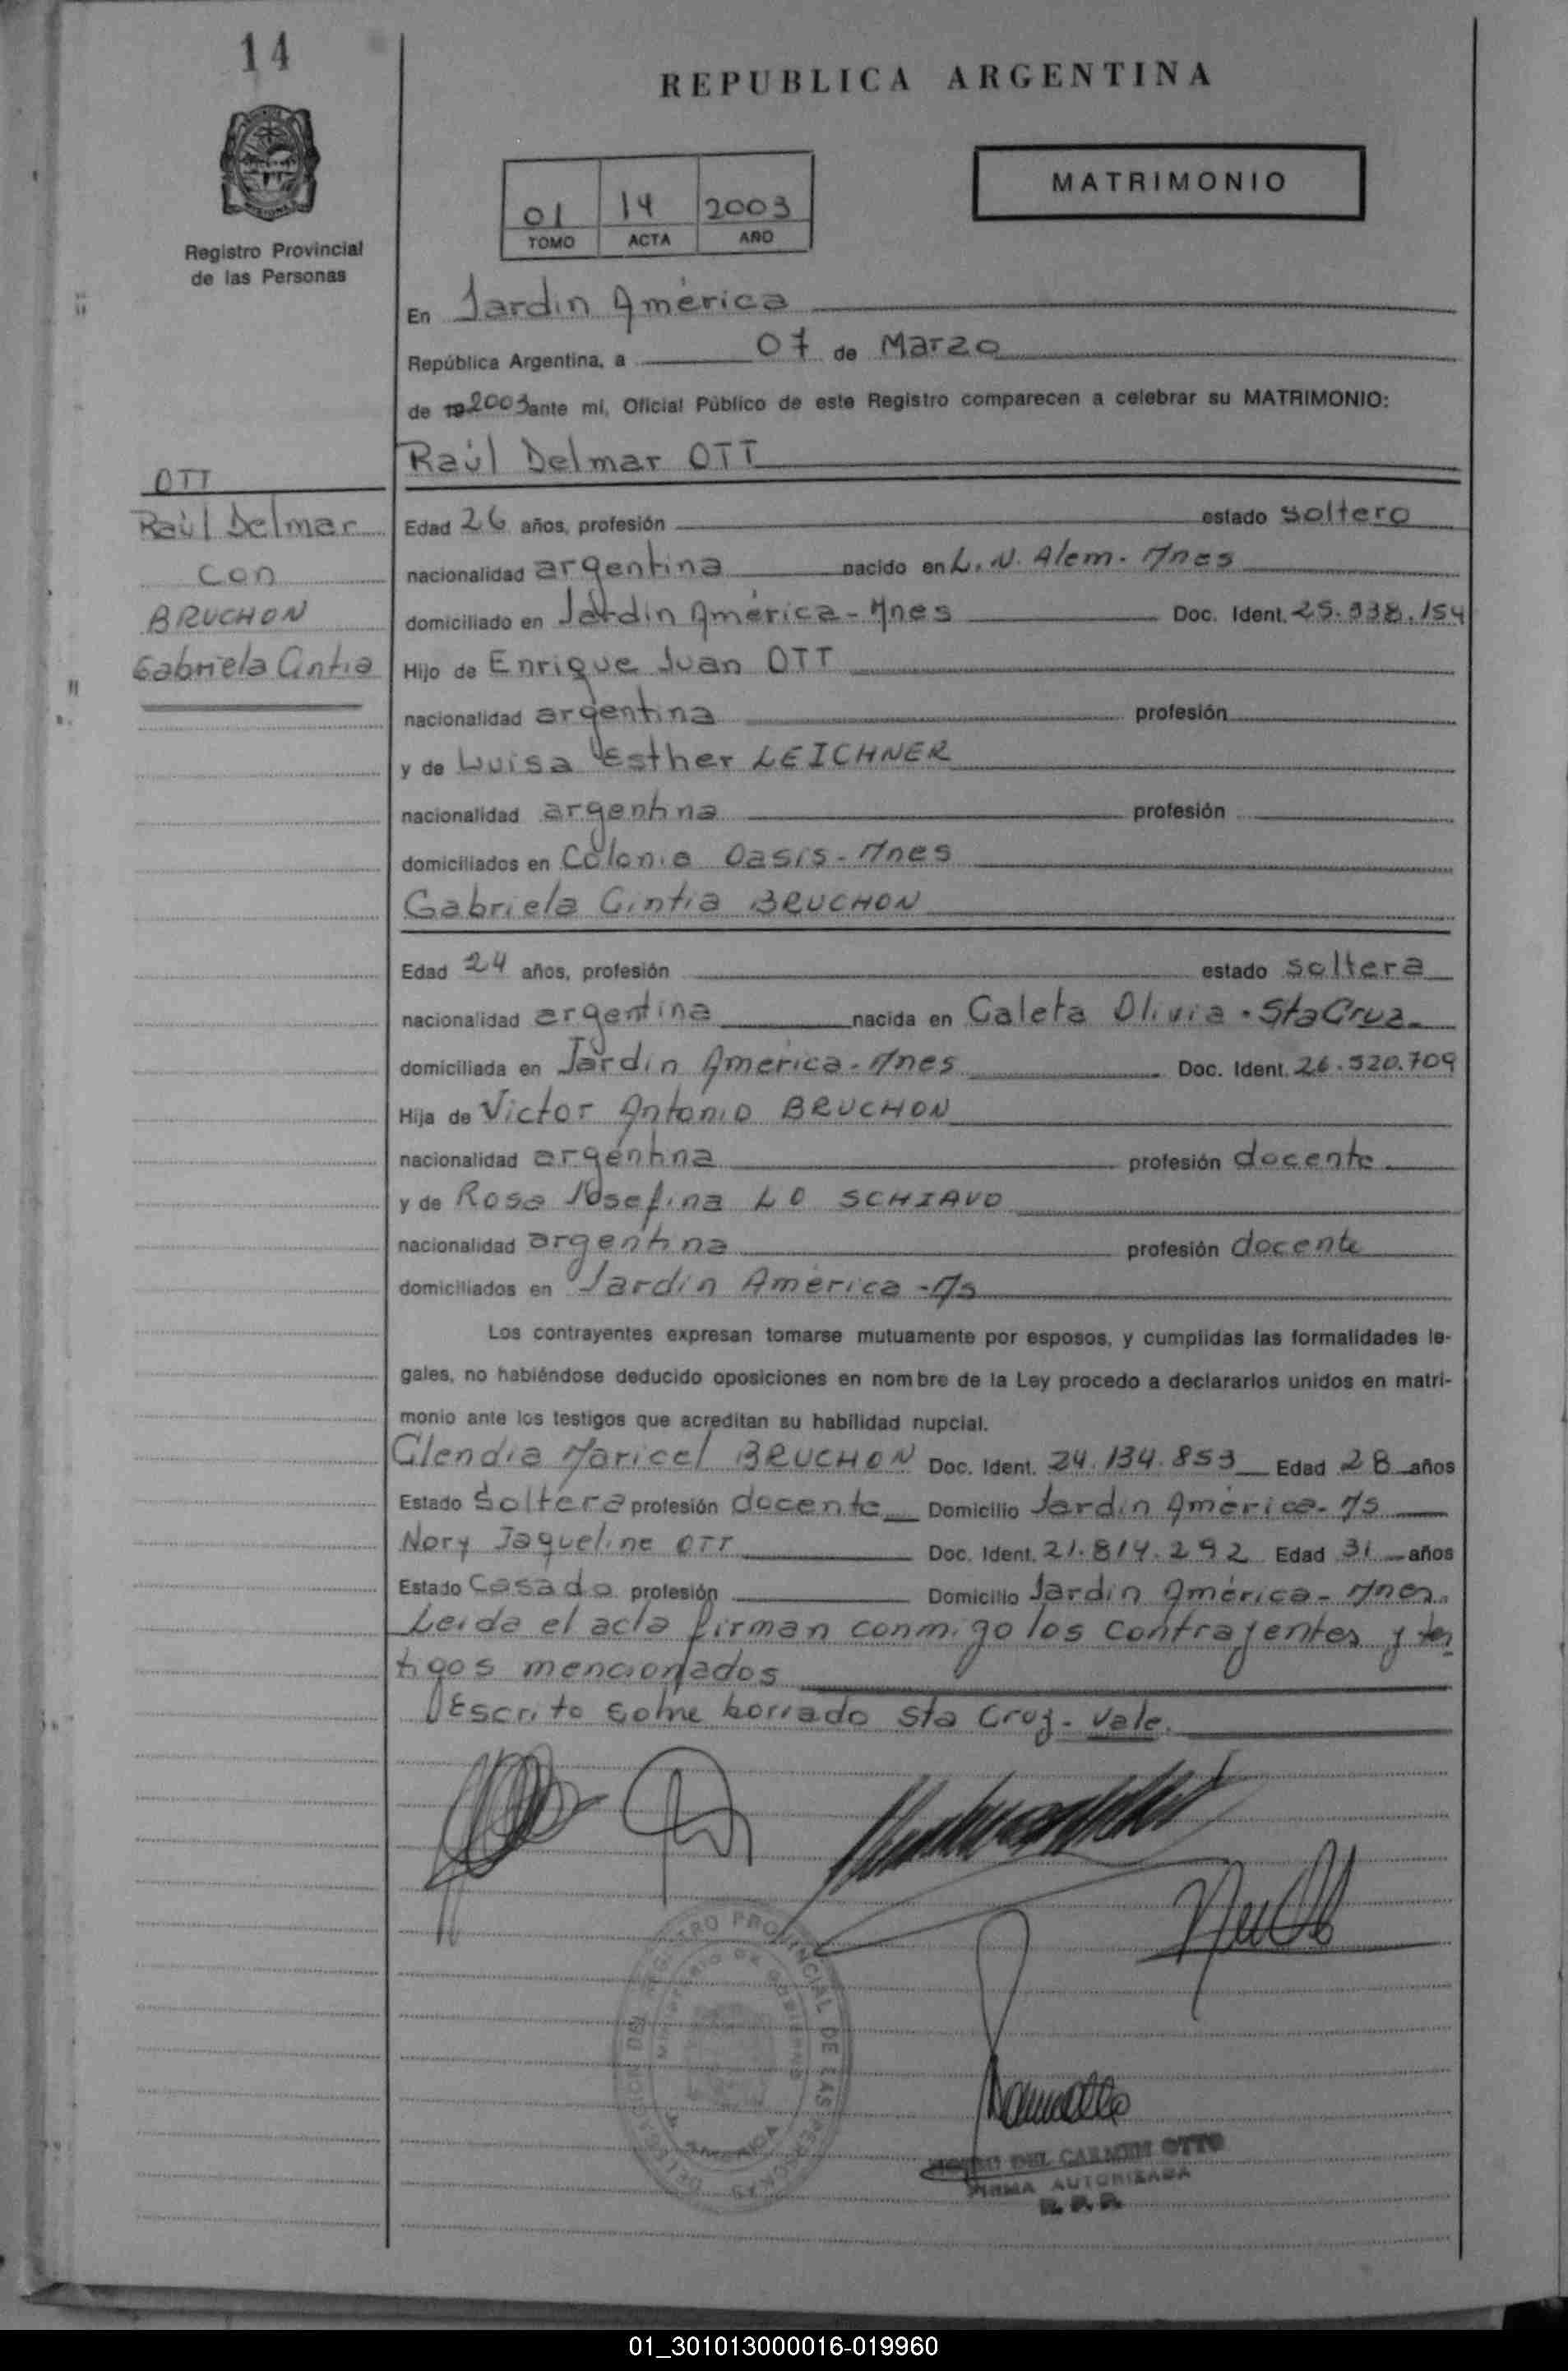 14
REPUBLICA ARGENTINA
MATRIMONIO
01 14 2003
TOMO ACTA AÑO
Registro Provincial
de las Personas
En Jardín América
República Argentina, a 07 de Marzo
de 19 2003 ante mí, Oficial Público de este Registro comparecen a celebrar su MATRIMONIO:
Raúl Delmar OTT
OTT
Raúl Delmar
con
BRUCHON
Gabriela Cintia
Edad 26 años, profesión estado soltero
nacionalidad argentina nacido en L. N. Alem - Mnes
domiciliado en Jardín América - Mnes Doc. Ident. 25.538.154
Hijo de Enrique Juan OTT
nacionalidad argentina profesión
y de Luisa Esther LEICHNER
nacionalidad argentina profesión
domiciliados en Colonia Oasis - Mnes
Gabriela Cintia BRUCHON
Edad 24 años, profesión estado soltera
nacionalidad argentina nacida en Caleta Olivia - Sta Cruz
domiciliada en Jardín América - Mnes Doc. Ident. 26.520.709
Hija de Victor Antonio BRUCHON
nacionalidad argentina profesión docente
y de Rosa Josefina LO SCHIAVO
nacionalidad argentina profesión docente
domiciliados en Jardín América - Ms
Los contrayentes expresan tomarse mutuamente por esposos, y cumplidas las formalidades le-
gales, no habiéndose deducido oposiciones en nombre de la Ley procedo a declararlos unidos en matri-
monio ante los testigos que acreditan su habilidad nupcial.
Glendia Maricel BRUCHON Doc. Ident. 24.134.853 Edad 28 años
Estado Soltera profesión docente Domicilio Jardín América - Ms
Nory Jaqueline OTT Doc. Ident. 21.814.292 Edad 31 años
Estado Casada profesión Domicilio Jardín América - Mnes.
Leída el acta firman conmigo los contrayentes y tes
tigos mencionados
Escrito sobre borrado Sta Cruz - Vale.
REGISTRO PROVINCIAL DE LAS PERSONAS
DEL CARMEN OTTO
FIRMA AUTORIZADA
R. P. P.
01_301013000016-019960